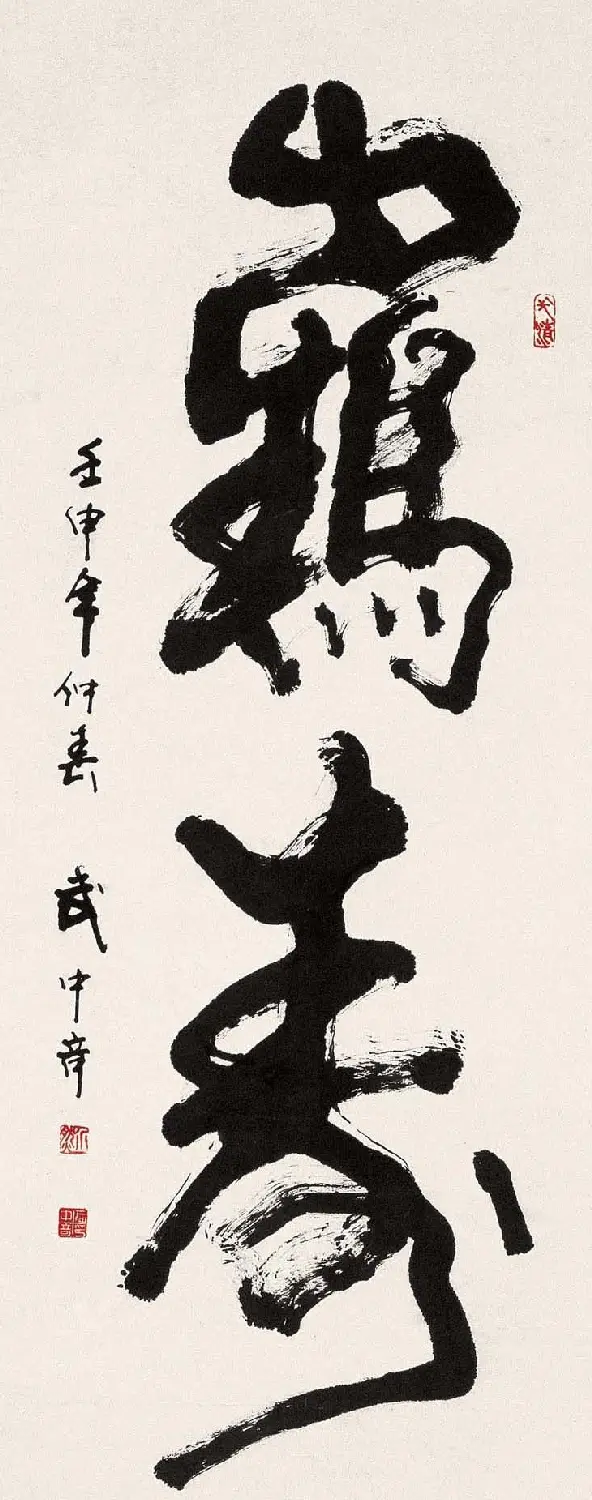 鶴壽
壬申年仲春 武中奇